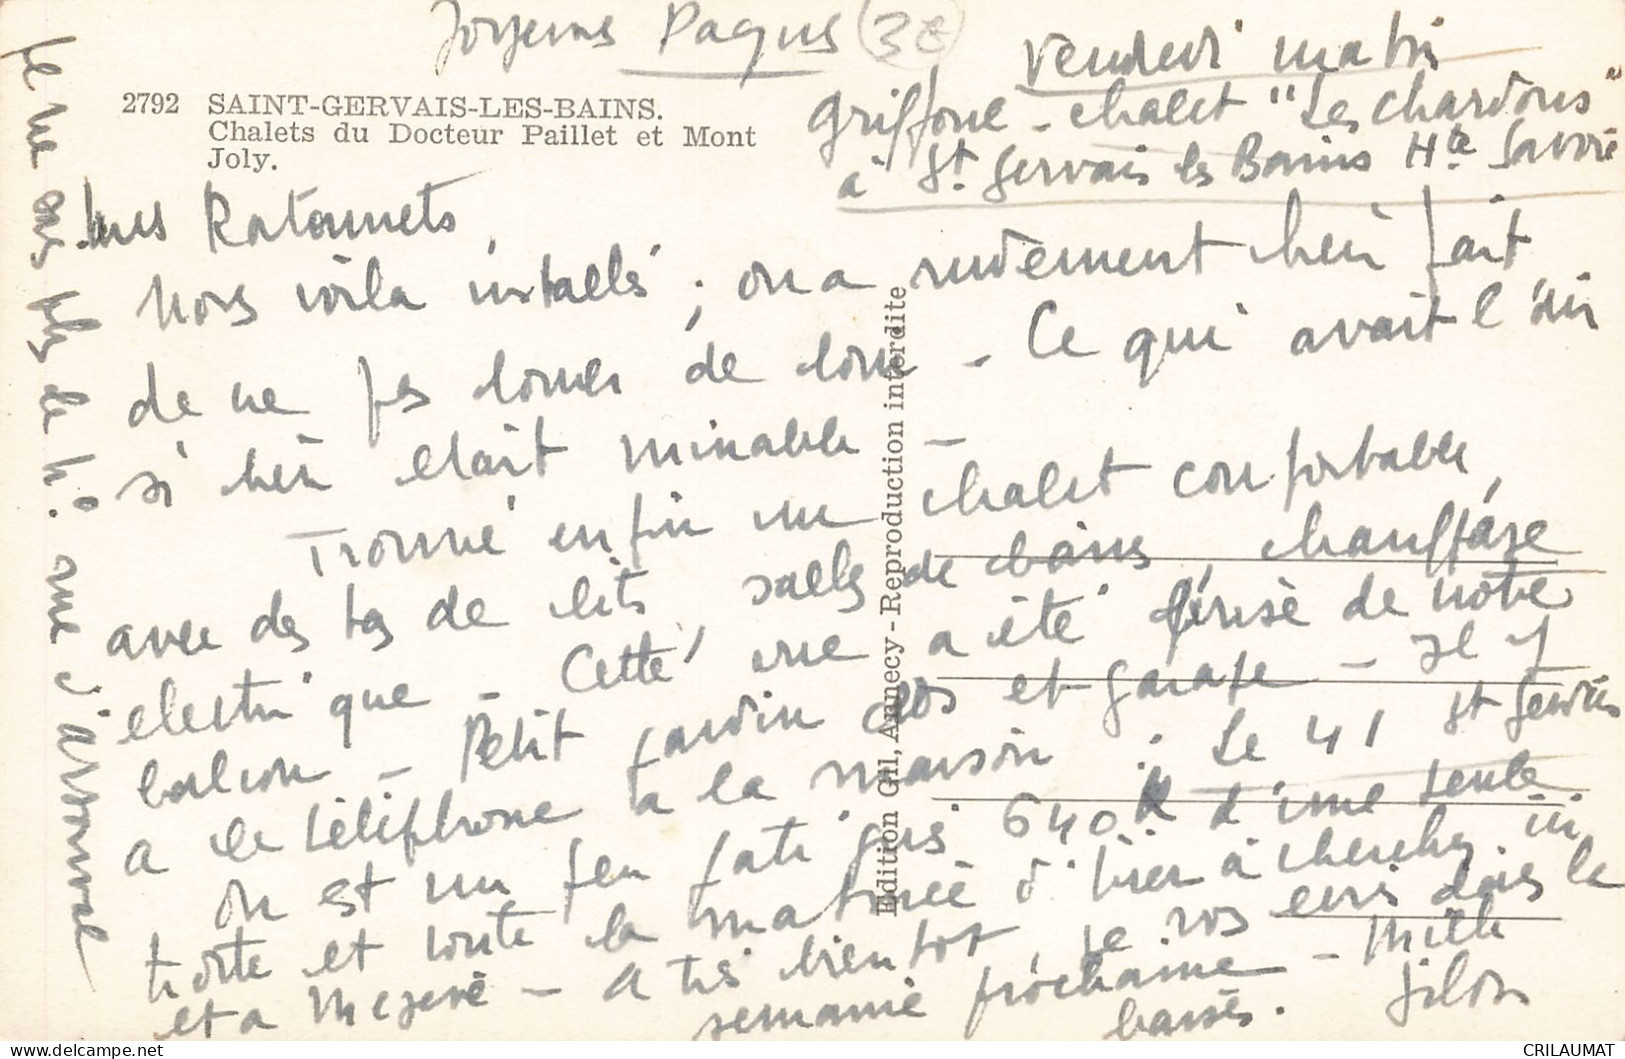 Joyeuses Paques 3€
Vendredi matin
Griffone - chalet "Les Chardons"
à St. Gervais les Bains Hte Savoie
2792 SAINT-GERVAIS-LES-BAINS.
Chalets du Docteur Paillet et Mont
Joly.
mes Ratonnets,
Nous voila installés ; on a rudement bien fait
de ne pas louer de loin - Ce qui avait l'air
si bien était minable -
Trouvé enfin un chalet confortable,
avec des tas de lits, salle de bains, chauffage
electrique - Cette vue a été prise de notre
balcon - Petit jardin clos et garage - Il y
a le téléphone à la maison : Le 41 St Gervais
On est un peu fatigués 640 K d'une seule
traite et toute la matinée d'hier à chercher ici
et a Megeve - A très bientot, je vos ecris dans la
semaine prochaine - Mille
baisers.
je ne sais plus le n° rue d'
Edition Gil, Annecy - Reproduction interdite
CRILAUMAT